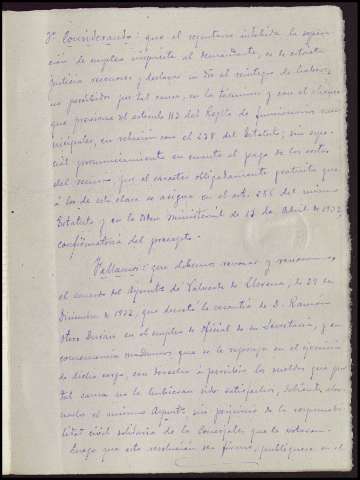 3º Considerando: que al reputarse indebida la separa-
ción de empleo impuesta al demandante, es de estricta
justicia reconocer y declarar su dro al reintegro de haberes
no percibidos por tal causa, en los términos y con el alcance
que previene el artículo 113 del Regltº de funcionarios mu-
nicipales, en relación con el 238 del Estatuto; sin espe-
cial pronunciamiento en cuanto al pago de las costas
del recurso, por el carácter obligadamente gratuito que
á los de esta clase se asigna en el art. 256 del mismo
Estatuto y en la Orden Ministerial de de Abril de 1932
confirmatoria del precepto.
Fallamos: que debemos revocar y revocamos
el acuerdo del Ayuntº de Valverde de Llerena, de 29 de
Diciembre de 1932, que decretó la cesantía de D. Ramón
Otero Durán en el empleo de oficial de su Secretaría, y en
consecuencia mandamos que se le reponga en el ejercicio
de dicho cargo, con derecho á percibir los sueldos que por
tal causa no le hubieran sido satisfechos, abo-
nando el mismo Ayuntº sin perjuicio de la responsabi-
lidad civil solidaria de los Concejales que lo votaron.
Luego que esta resolución sea firme, publíquese en el